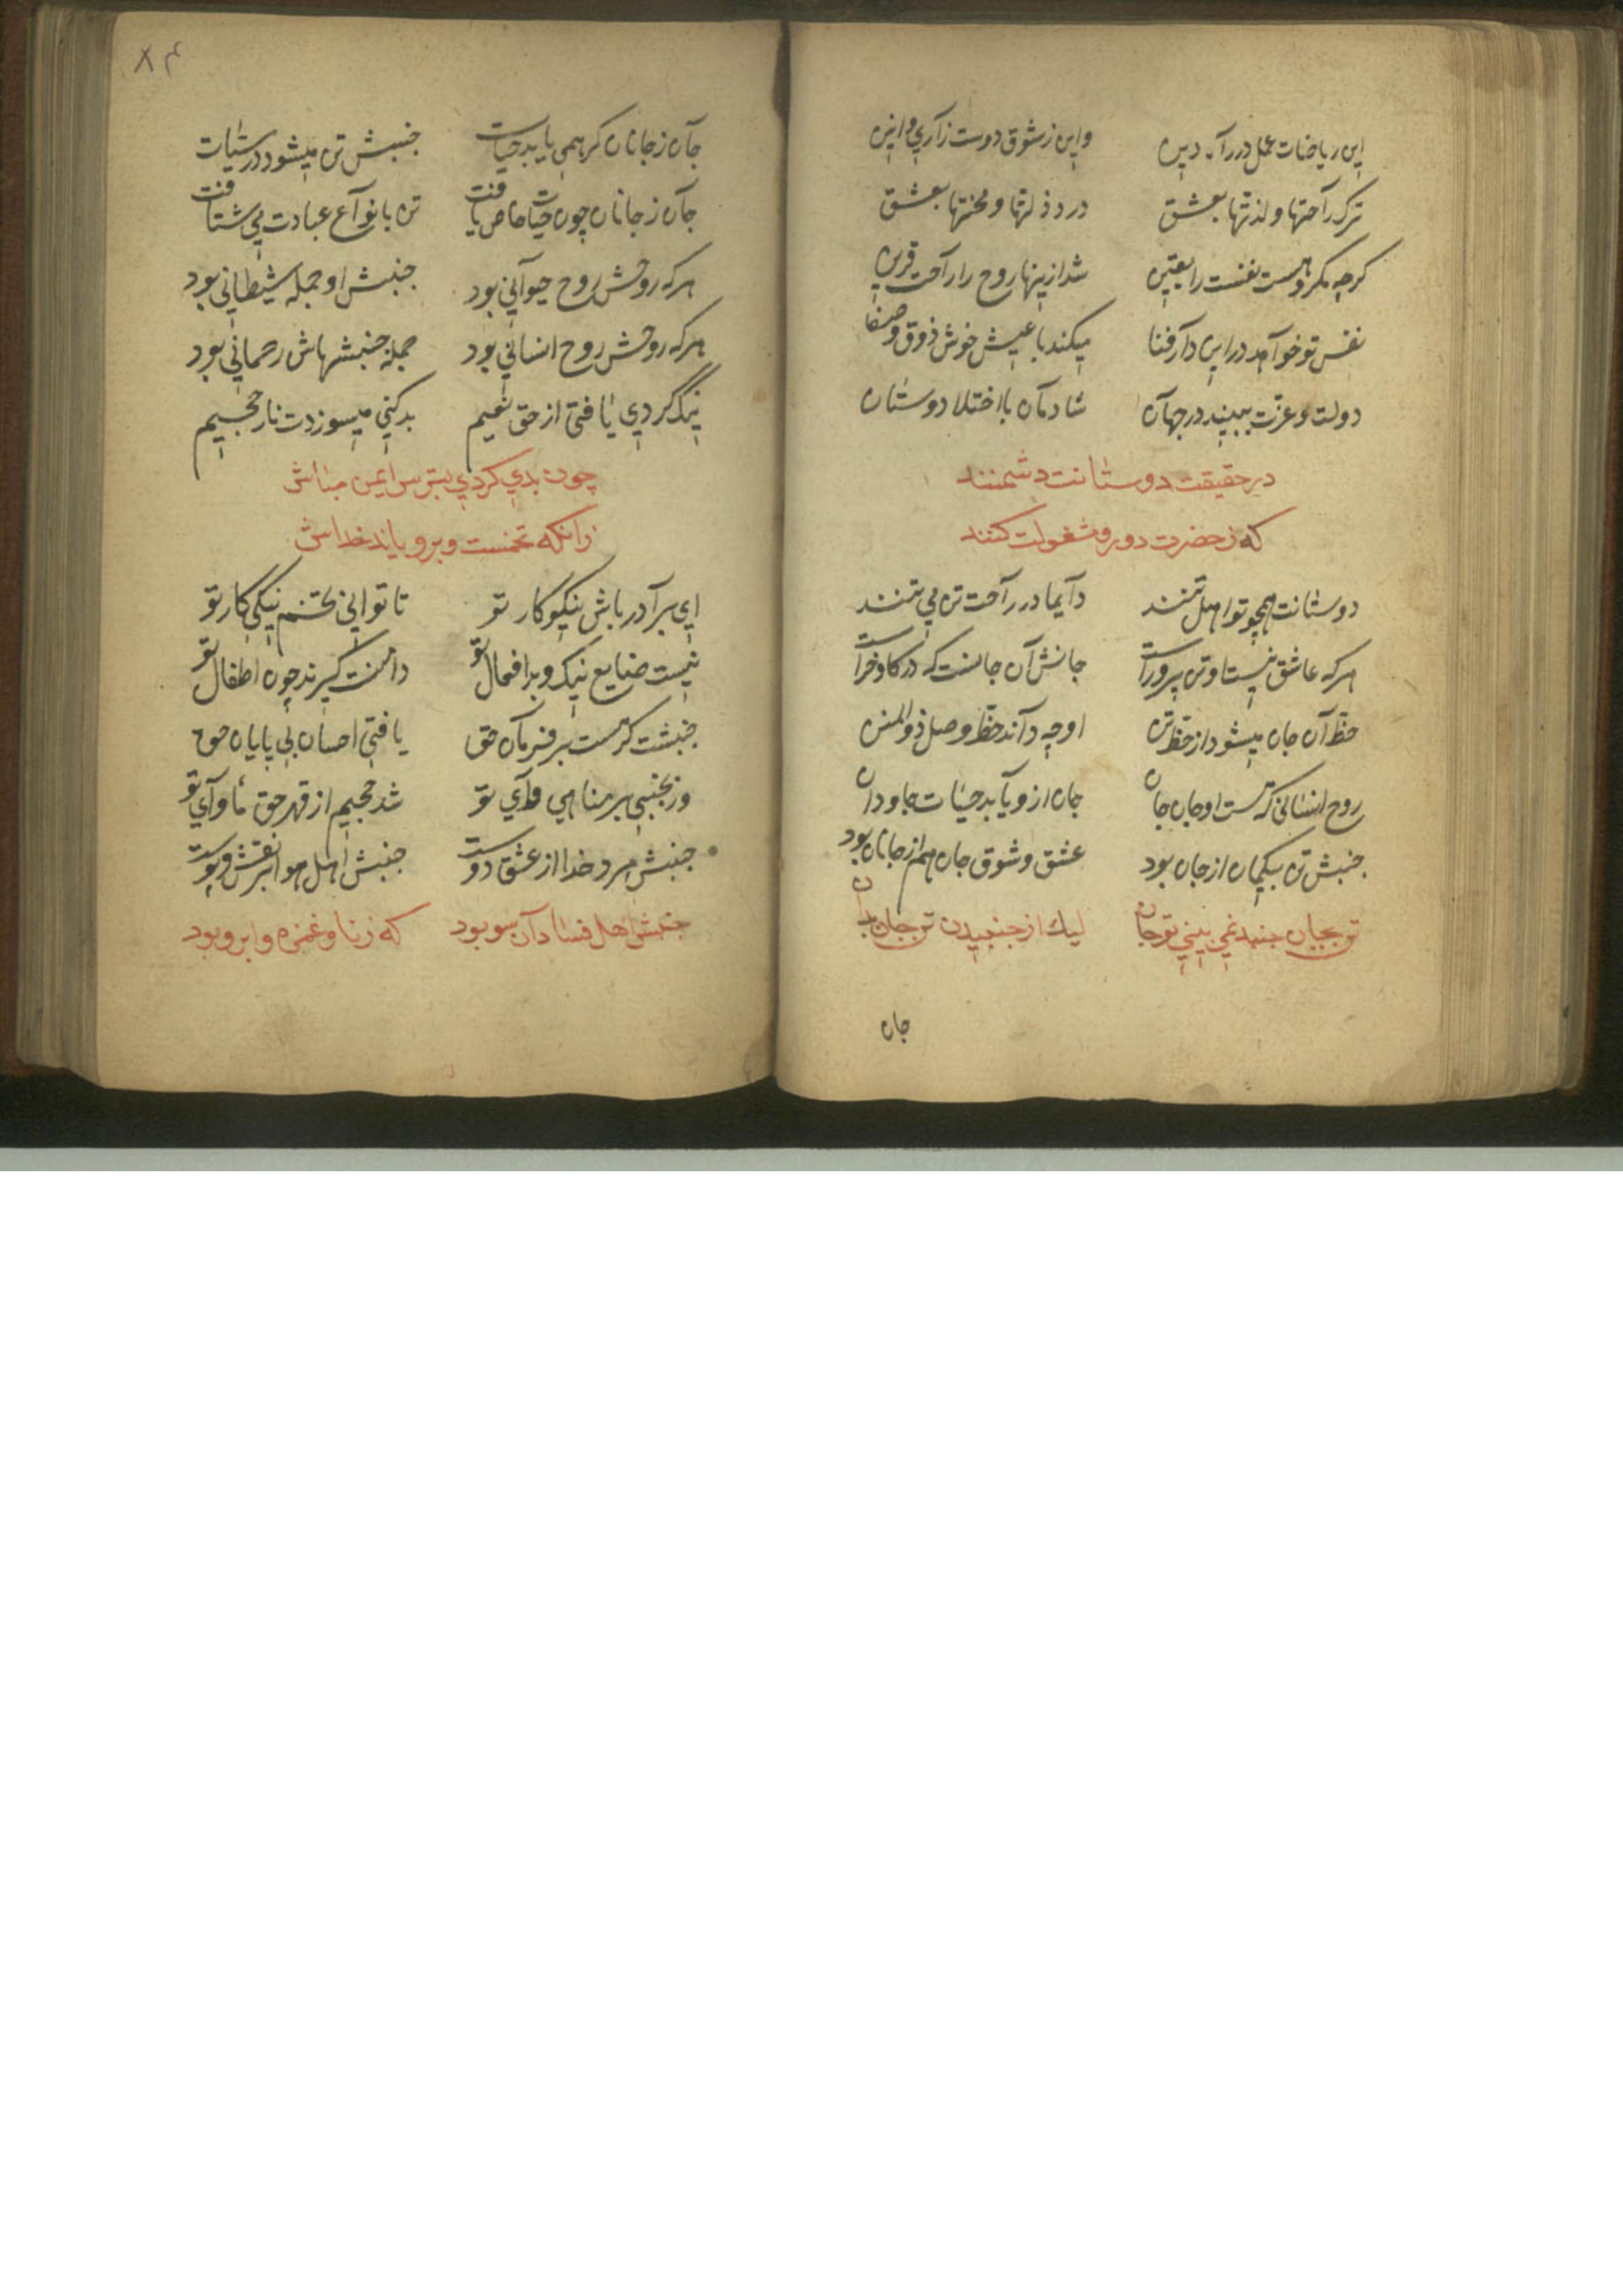 این ریاضات عمل در راه دین واین ز شوق دوست زاری وانین
ترک راحتها و لذتها بعشق درد ذلتها و محنتها بعشق
کرچه مکروهست نفست را یقین شد ازینها روح را راحت قرین
نفس تو خواهد در این دار فنا میکند با عیش خوش ذوق وصفا
دولت و عزت ببیند در جهان شادمان با اختلا دوستان
در حقیقت دوستانت دشمنند
که ز حضرت دور و مشغولت کنند
دوستانت همچو تو اهل تنند دایما در راحت تن می تنند
هرکه عاشق نیست او تن پرورست جانش آن جانست که در کاو خراست
حظ آن جان میشود از حظ تن او چه داند حظ وصل ذو المنن
روح انسانی که هست او جان جان جان ازو یابد حیات جاودان
جنبش تن بیکمان از جان بود عشق و شوق جان هم از جانان بود
تن بجان جنبد نمی بینی تو جان لیك از جنبیدن تن جان بدان
جان
۸۴
جان ز جانان کر همی یابد حیات جنبش تن میشود در سیات
جان ز جانان چون حیات خاص یافت تن بانواع عبادت می شتافت
هرکه روحش روح حیوانی بود جنبش او جمله شیطانی بود
هرکه روحش روح انسانی بود جمله جنبشهاش رحمانی بود
نیک کردی یافتی از حق نعیم بد کنی میسوزدت نار جحیم
چون بدی کردی بترس ایمن مباش
زانکه تخمست و برویاند خداش
ای برادر باش نیکو کار تو تا توانی تخم نیکی کار تو
نیست ضایع نیک و بد افعال تو دامنت کیرند چون اطفال تو
جنبشت کر هست بر فرمان حق یافتی احسان بی پایان حق
ور بجنبی بر مناهی وای تو شد جحیم از قهر حق ماوای تو
جنبش مرد خدا از عشق دوست جنبش اهل هوا بر نقش و پوست
جنبش اهل فساد آن سو بود که زنا و غمزه و ابرو بود